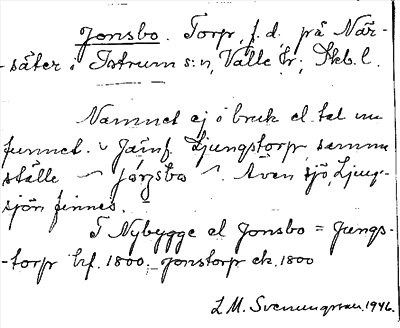 Jonsbo. Torp, f.d. på När-
-säter i Istrum s:n, Valle hr; Skb.l.
Namnet ej i bruk el. tal nu
funnet. v Jämf. Ljungstorp, samma
ställe ⁓ jǫŋsbo ⁓. Även sjö, Ljung-
sjön finnes.
T Nybygge el Jonsbo = Jungs-
-torp hf. 1800. Jonstorp ek. 1800
L M. Svenungsson. 1946.